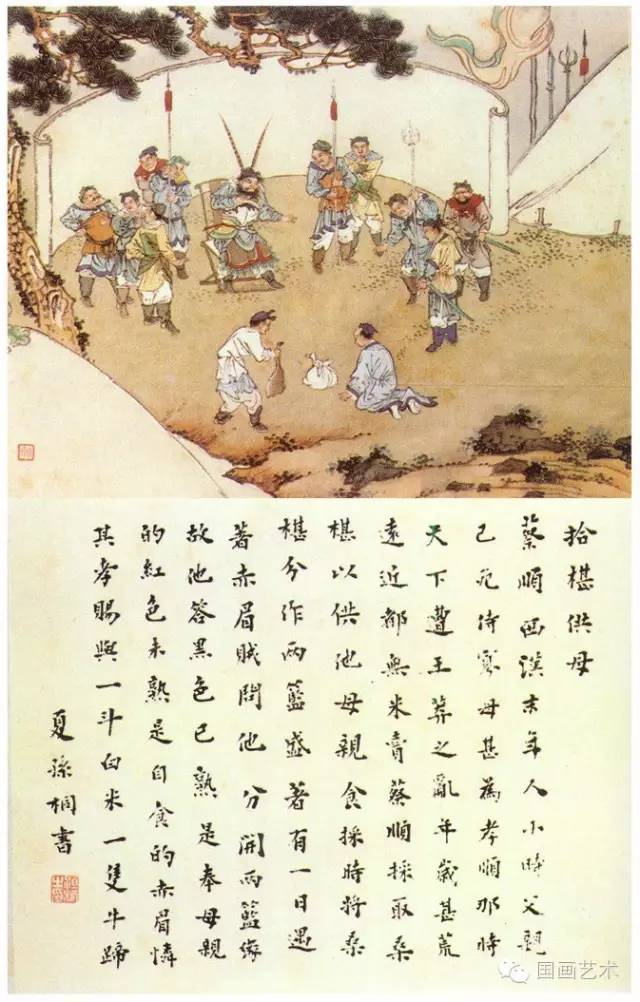 拾椹供母
蔡順西漢末年人小時父親
已死侍寡母甚為孝順那時
天下遭王莽之亂年歲甚荒
遠近都無米賣蔡順採取桑
椹以供他母親食採時將桑
椹分作兩籃盛著有一日遇
著赤眉賊問他分開兩籃緣
故他答黑色已熟是奉母親
的紅色未熟是自食的赤眉憐
其孝賜與一斗白米一隻牛蹄
夏孫桐書
国画艺术